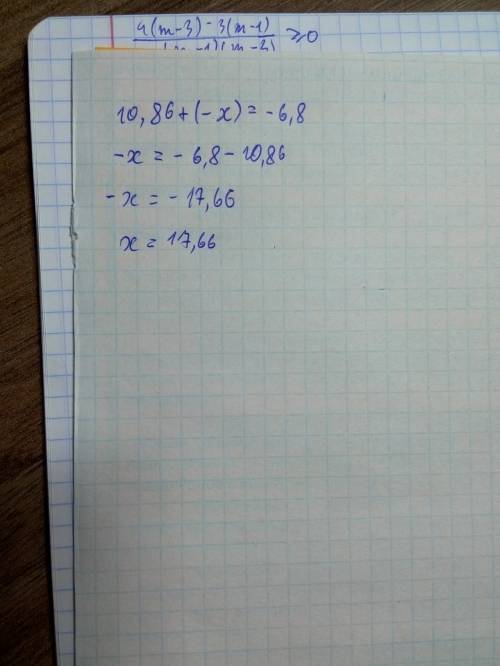 4(m-3)-3(m-1)
(m-1)(m-3) ≥0
10,86+(-x)=-6,8
-x = -6,8-10,86
-x = -17,66
x = 17,66